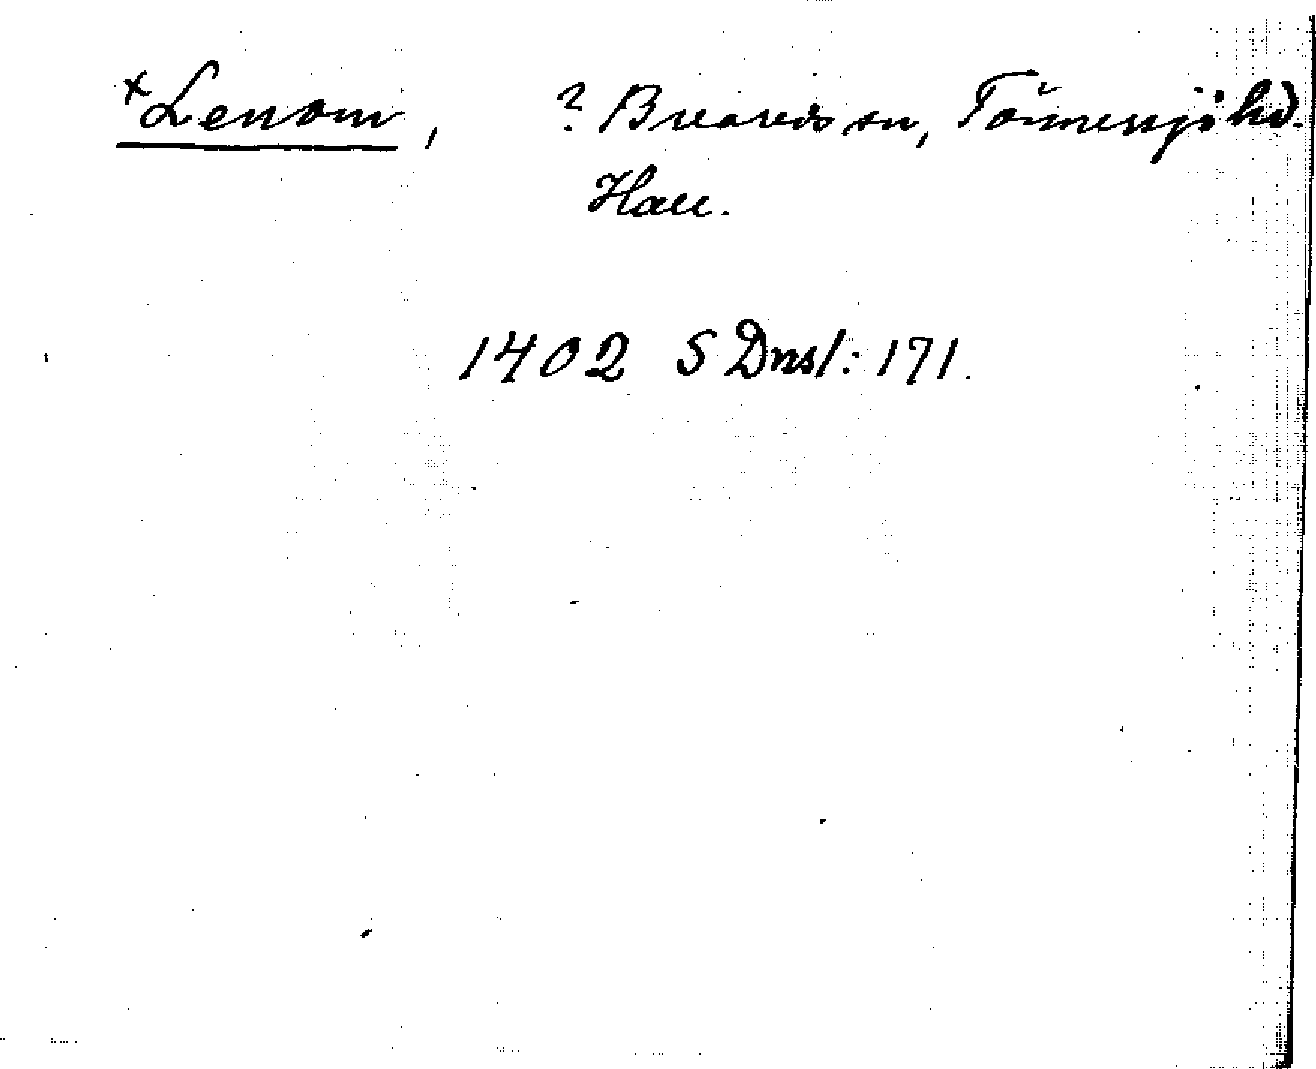 ×Lenom, ? Breareds sn, Tönnersjö hd.
Hall.
1402 SDnsl: 171.